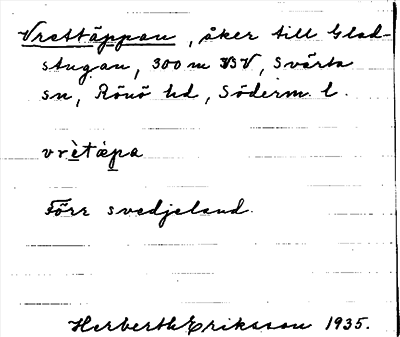 Vrettäppan, åker till Glad-
stugan, 300 m VSV, Svärta
sn, Rönö hd, Söderm. l.
vrètäpa
Förr svedjeland.
Herberth Eriksson 1935.